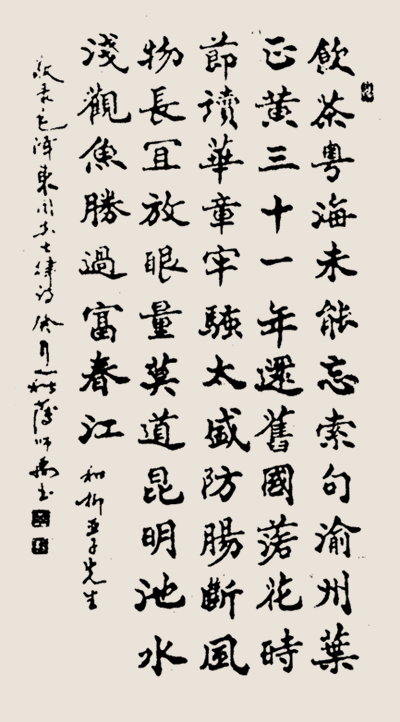 飲茶粤海未能忘索句渝州葉
正黃三十一年還舊國落花時
節讀華章牢騷太盛防腸斷風
物長冝放眼量莫道昆明池水
淺觀魚勝過富春江
和柳亞子先生
敬录毛澤東同志七律詩